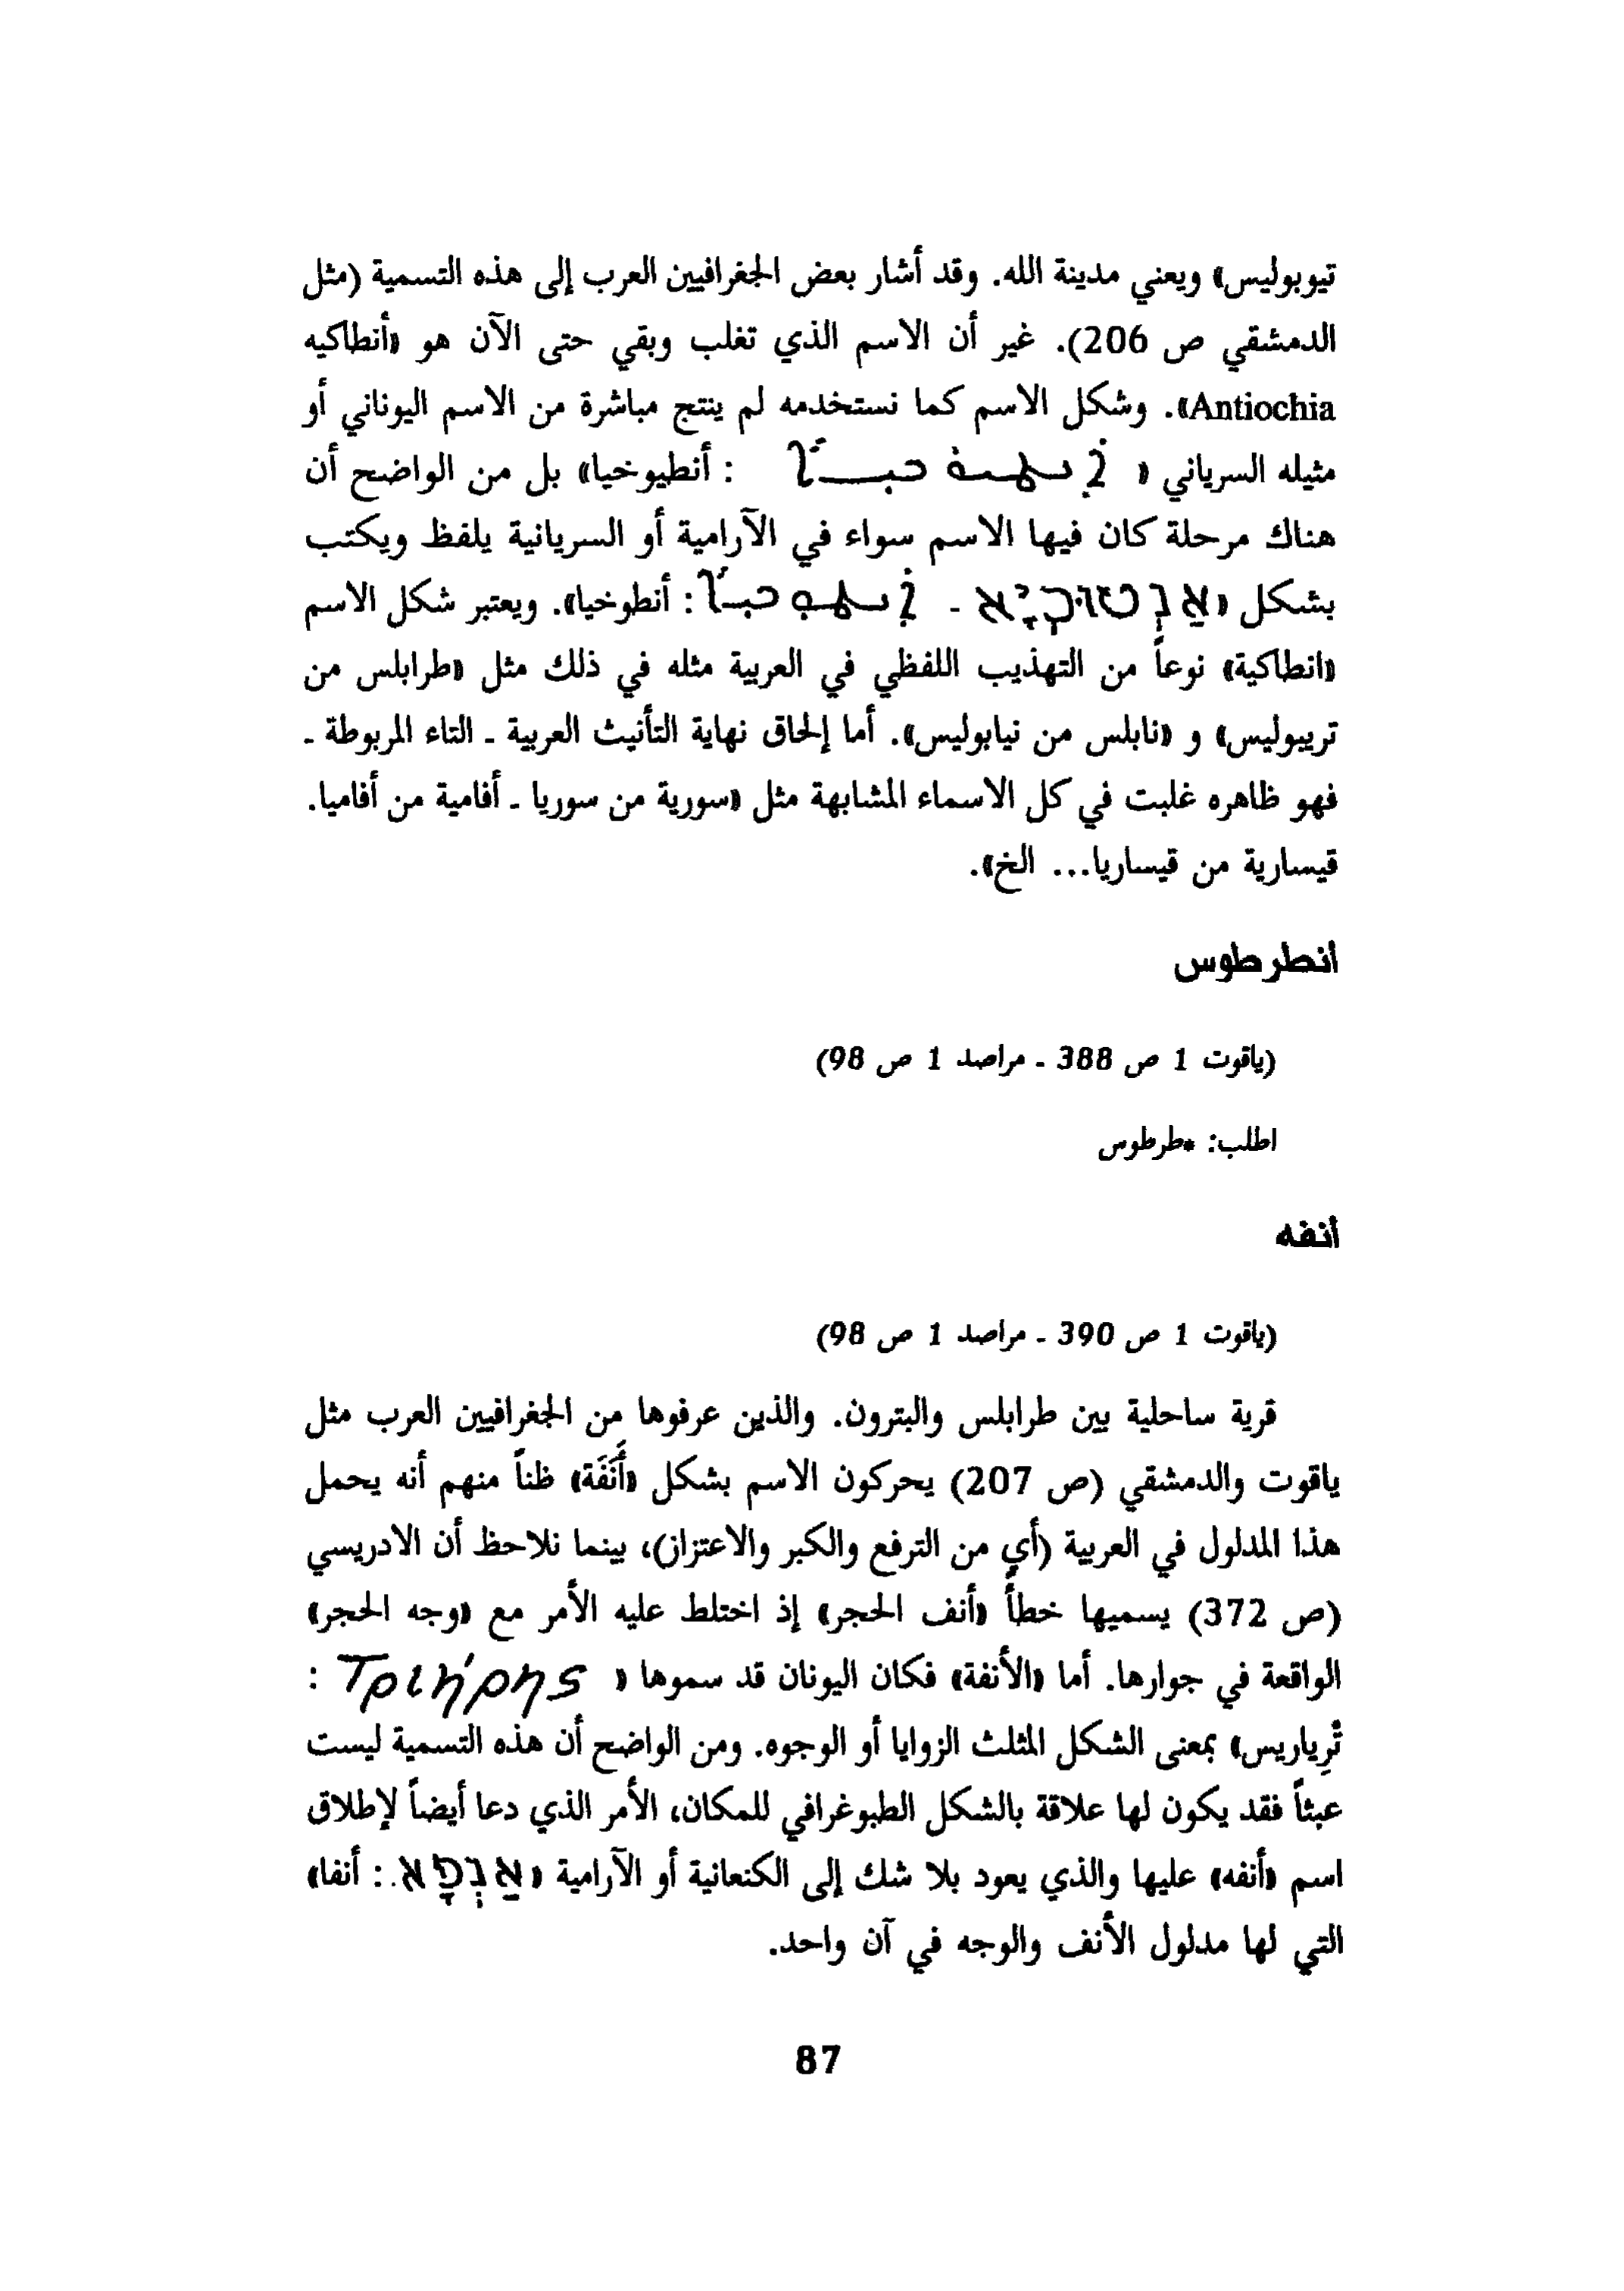 تيوبوليس» ويعني مدينة الله. وقد أشار بعض الجغرافيين العرب إلى هذه التسمية (مثل
الدمشقي ص 206). غير أن الاسم الذي تغلب وبقي حتى الآن هو «أنطاكيه
Antiochia». وشكل الاسم كما نستخدمه لم ينتج مباشرة من الاسم اليوناني أو
مثيله السرياني « : أنطيوخيا» بل من الواضح أن
هناك مرحلة كان فيها الاسم سواء في الآرامية أو السريانية يلفظ ويكتب
بشكل « - : أنطوخيا». ويعتبر شكل الاسم
«انطاكية» نوعاً من التهذيب اللفظي في العربية مثله في ذلك مثل «طرابلس من
تريبوليس» و «نابلس من نيابوليس». أما إلحاق نهاية التأنيث العربية - التاء المربوطة -
فهو ظاهره غلبت في كل الاسماء المشابهة مثل «سورية من سوريا - أفامية من أفاميا.
قيسارية من قيساريا... الخ».
أنطرطوس
(ياقوت 1 ص 388 - مراصد 1 ص 98)
اطلب: *طرطوس
أنفه
(ياقوت 1 ص 390 - مراصد 1 ص 98)
قرية ساحلية بين طرابلس والبترون. والذين عرفوها من الجغرافيين العرب مثل
ياقوت والدمشقي (ص 207) يحركون الاسم بشكل «أَنَفَة» ظناً منهم أنه يحمل
هذا المدلول في العربية (أي من الترفع والكبر والاعتزاز)، بينما نلاحظ أن الادريسي
(ص 372) يسميها خطأً «أنف الحجر» إذ اختلط عليه الأمر مع «وجه الحجر»
الواقعة في جوارها. أما «الأنفة» فكان اليونان قد سموها « Τριήρης :
تْرِياريس» بمعنى الشكل المثلث الزوايا أو الوجوه. ومن الواضح أن هذه التسمية ليست
عبثاً فقد يكون لها علاقة بالشكل الطبوغرافي للمكان، الأمر الذي دعا أيضاً لإطلاق
اسم «أنفه» عليها والذي يعود بلا شك إلى الكنعانية أو الآرامية «אַנְפָּא : أنفا»
التي لها مدلول الأنف والوجه في آن واحد.
87